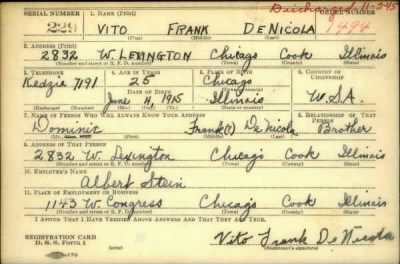 Discharged 11-245
SERIAL NUMBER 1. NAME (Print) ORDER NUMBER
229 VITO FRANK DE NICOLA 1494
(First) (Middle) (Last)
2. ADDRESS (Print)
2832 W. LEXINGTON Chicago Cook Illinois
(Number and street or R. F. D. number) (Town) (County) (State)
3. TELEPHONE 4. AGE IN YEARS 5. PLACE OF BIRTH 6. COUNTRY OF CITIZENSHIP
Kedzie 7191 25 Chicago
DATE OF BIRTH (Town or county)
June 4, 1915 Illinois U.S.A.
7. NAME OF PERSON WHO WILL ALWAYS KNOW YOUR ADDRESS 8. RELATIONSHIP OF THAT PERSON
Dominic Frank(?) De Nicola Brother
9. ADDRESS OF THAT PERSON
2832 W. Lexington Chicago Cook Illinois
10. EMPLOYER'S NAME
Albert Stein
11. PLACE OF EMPLOYMENT OR BUSINESS
1143 W. Congress Chicago Cook Illinois
(Number and street or R. F. D. number) (Town) (County) (State)
I AFFIRM THAT I HAVE VERIFIED ABOVE ANSWERS AND THAT THEY ARE TRUE.
REGISTRATION CARD
D. S. S. Form 1
Vito Frank De Nicola
(Registrant's signature)